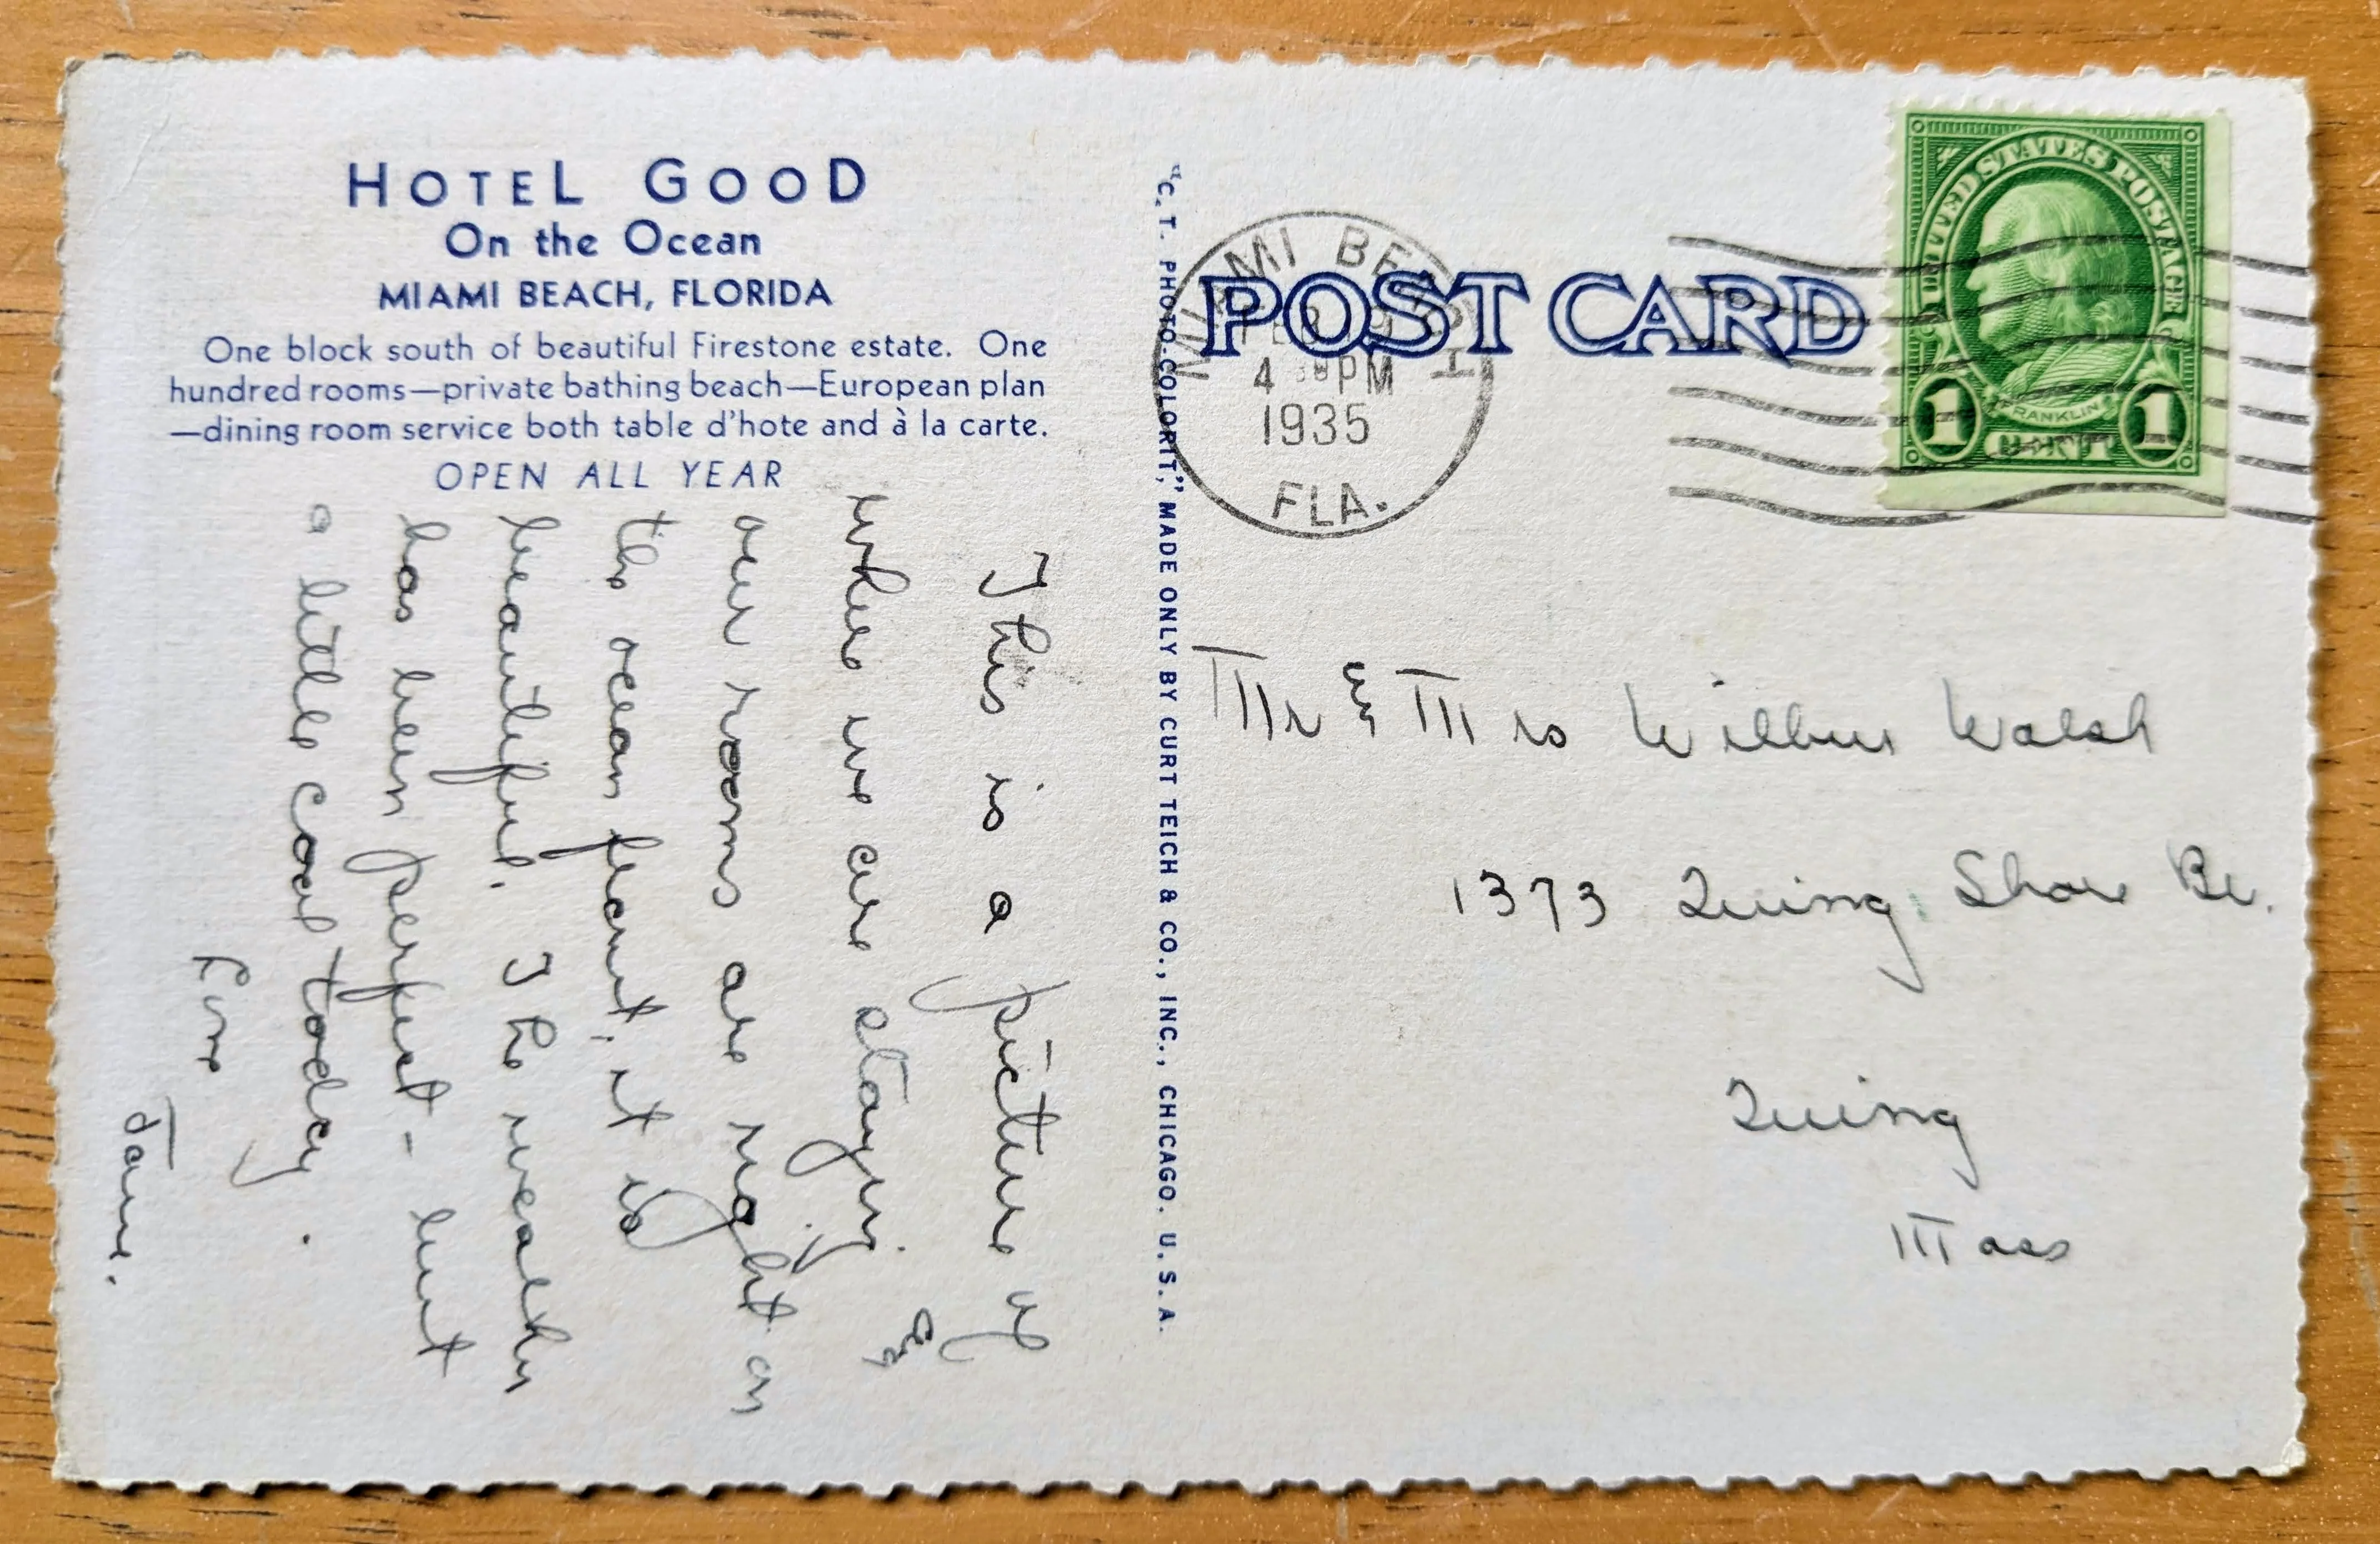 HOTEL GOOD
On the Ocean
MIAMI BEACH, FLORIDA
One block south of beautiful Firestone estate. One
hundred rooms—private bathing beach—European plan
—dining room service both table d'hote and à la carte.
OPEN ALL YEAR
This is a picture of
where we are staying.
our rooms are right on
the ocean front, it is
beautiful. The weather
has been perfect - but
a little cool today.
Love
Jane.
"C. T. PHOTO-COLORIT," MADE ONLY BY CURT TEICH & CO., INC., CHICAGO. U. S. A.
POST CARD
MIAMI BEACH
FEB
4 PM
1935
FLA.
UNITED STATES POSTAGE
FRANKLIN
1 CENT 1
Mr & Mrs Wilbur Walsh
1373 Quincy Shore Bv.
Quincy
Mass